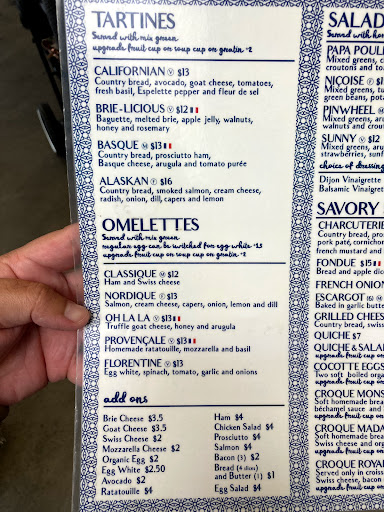 TARTINES
Served with mix green
upgrade fruit cup or soup cup or gratin +2
CALIFORNIAN Ⓥ $13
Country bread, avocado, goat cheese, tomatoes,
fresh basil, Espelette pepper and fleur de sel
BRIE-LICIOUS Ⓥ $12
Baguette, melted brie, apple jelly, walnuts,
honey and rosemary
BASQUE Ⓜ $13
Country bread, prosciutto ham,
Basque cheese, arugula and tomato purée
ALASKAN Ⓕ $16
Country bread, smoked salmon, cream cheese,
radish, onion, dill, capers and lemon
OMELETTES
Served with mix green
regular egg can be switched for egg white +2.5
upgrade fruit cup or soup cup or gratin +2
CLASSIQUE Ⓜ $12
Ham and Swiss cheese
NORDIQUE Ⓕ $13
Salmon, cream cheese, capers, onion, lemon and dill
OH LA LA Ⓥ $13
Truffle goat cheese, honey and arugula
PROVENÇALE Ⓥ $13
Homemade ratatouille, mozzarella and basil
FLORENTINE Ⓥ $13
Egg white, spinach, tomato, garlic and onions
add ons
Brie Cheese $3.5
Goat Cheese $3.5
Swiss Cheese $2
Mozzarella Cheese $2
Organic Egg $2
Egg White $2.50
Avocado $2
Ratatouille $4
Ham $4
Chicken Salad $4
Prosciutto $4
Salmon $4
Bacon (3) $2
Bread (4 slices)
and Butter (1) $1
Egg Salad $4
SALAD
Served with
PAPA POUL
Mixed greens,
croutons and
NIÇOISE Ⓕ
Mixed greens,
green beans,
PINWHEEL
Mixed greens,
walnuts and
SUNNY Ⓥ $12
Mixed greens,
strawberries,
choice of dressing
Dijon Vinaigrette
Balsamic Vinaigret
SAVORY
CHARCUTERIE
Country bread,
pork paté, cornichon
french mustard and
FONDUE $15
Bread and apple
FRENCH ONION
ESCARGOT (6)
Baked in garlic
GRILLED CHEES
Country bread,
QUICHE $7
QUICHE & SALA
upgrade fruit cup
COCOTTE EGGS
Two soft boiled
CROQUE MONS
Soft homemade
béchamel sauce and
CROQUE MADA
Soft homemade
Swiss cheese and
upgrade fruit cup
CROQUE ROYAL
Served only in
Swiss cheese, bacon
upgrade fruit cup